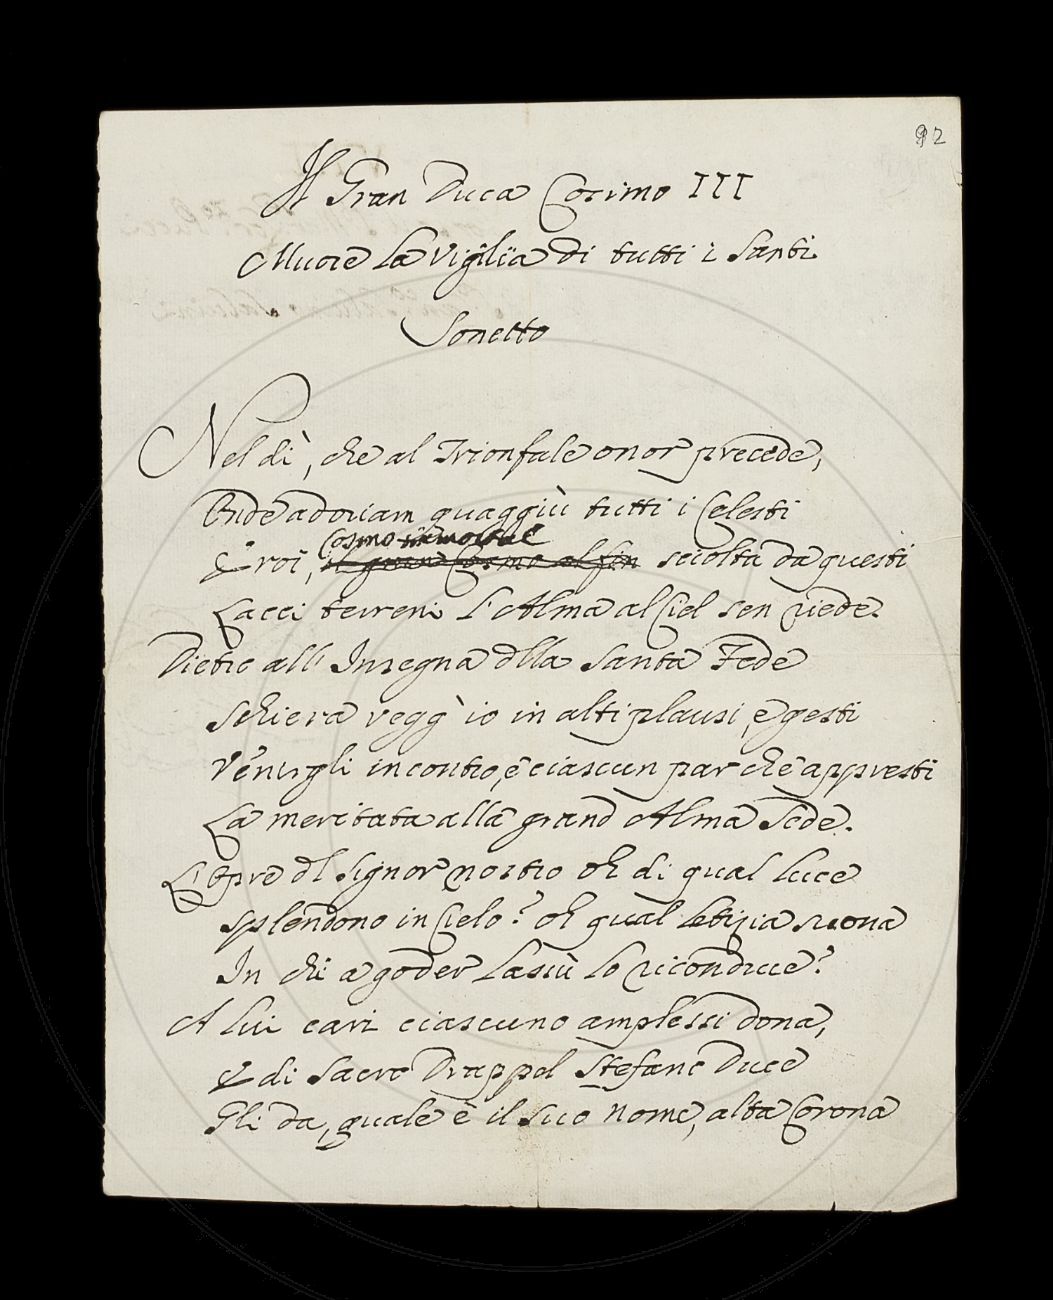 92
Il Gran Duca Cosimo III
Muore la Vigilia di tutti i Santi
Sonetto
Nel dì, che al Trionfale onor precede,
Onde adoriam quaggiù tutti i Celesti
Cosmo immortale
Eroi, il gran Cosmo al fin sciolta da questi
Lacci terreni l'Alma al Ciel sen riede.
Dietro all' Insegna dlla Santa Fede
Schiera vegg' io in alti plausi, e gesti
Venirgli incontro, e ciascun par che appresti
La meritata alla grand Alma Sede.
L'Opre dl Signor nostro oh di qual luce
Splendono in Cielo? oh qual letizia suona
In chi a goder lassù lo riconduce?
A lui cari ciascuno amplessi dona,
E di Sacro Drappel Stefano Duce
Gli da, quale è il suo nome, alta Corona